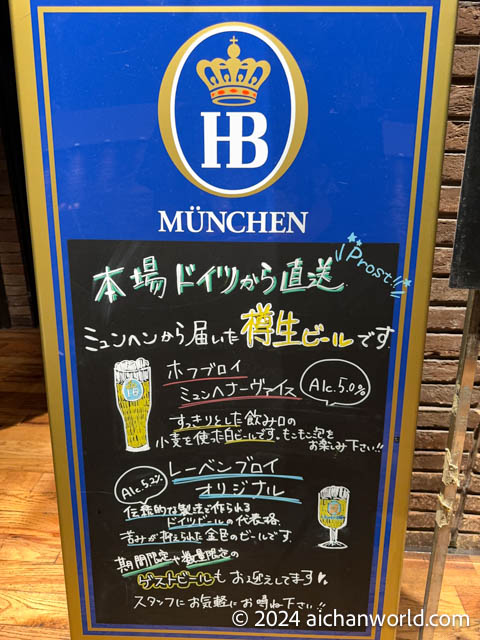 HB
MÜNCHEN
本場ドイツから直送
Prost!!
ミュンヘンから届いた樽生ビールです。
ホフブロイ
ミュンヘナーヴァイス
Alc.5.0%
すっきりとした飲み口の
小麦を使った白ビールです。もこもこ泡を
お楽しみ下さい!!
レーベンブロイ
オリジナル
Alc.5.2%
伝統的な製法で作られる
ドイツビールの代表格。
苦みが抑えられた金色のビールです。
期間限定や数量限定の
ゲストビールもお迎えしてます
スタッフにお気軽にお尋ね下さい!!
© 2024 aichanworld.com